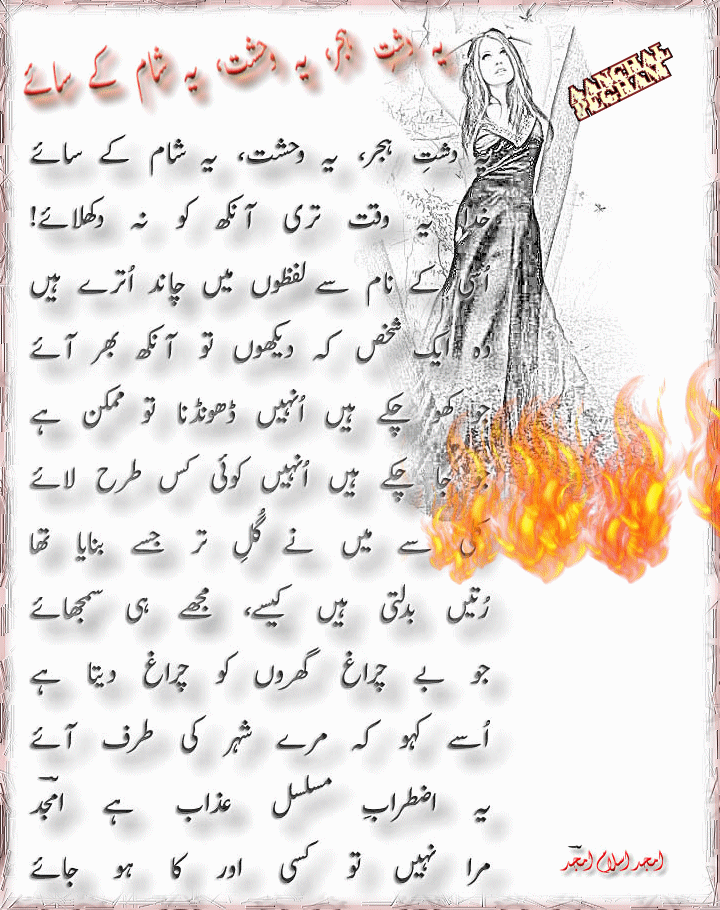 یہ دشتِ ہجر، یہ وحشت، یہ شام کے سائے
AANCHAL
PEGHAM
یہ دشتِ ہجر، یہ وحشت، یہ شام کے سائے
خدا یہ وقت تری آنکھ کو نہ دکھلائے!
اُسی کے نام سے لفظوں میں چاند اُترے ہیں
وہ ایک شخص کہ دیکھوں تو آنکھ بھر آئے
جو کھو چکے ہیں اُنہیں ڈھونڈنا تو ممکن ہے
جو جا چکے ہیں اُنہیں کوئی کس طرح لائے
سے میں نے گُلِ تر جسے بنایا تھا
رُتیں بدلتی ہیں کیسے، مجھے ہی سمجھائے
جو بے چراغ گھروں کو چراغ دیتا ہے
اُسے کہو کہ مرے شہر کی طرف آئے
یہ اضطرابِ مسلسل عذاب ہے امجدؔ
مرا نہیں تو کسی اور کا ہو جائے
امجد اسلام امجدؔ